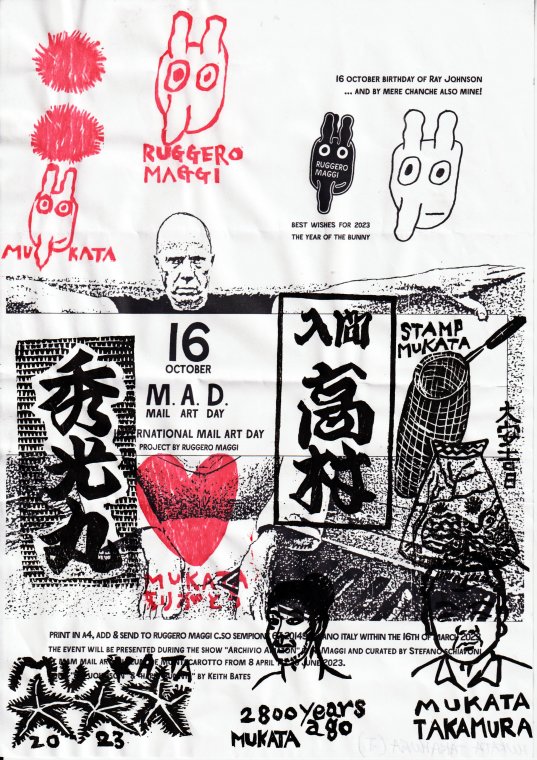 16 OCTOBER BIRTHDAY OF RAY JOHNSON
... AND BY MERE CHANCHE ALSO MINE!
RUGGERO
MAGGI
RUGGERO
MAGGI
MUKATA
BEST WISHES FOR 2023
THE YEAR OF THE BUNNY
16
OCTOBER
M.A.D.
MAIL ART DAY
RNATIONAL MAIL ART DAY
PROJECT BY RUGGERO MAGGI
入間
高村
STAMP
MUKATA
秀光丸
MUKATA
PRINT IN A4, ADD & SEND TO RUGGERO MAGGI C.SO SEMPIONE ITALY WITHIN THE 16TH OF MARCH 2023
THE EVENT WILL BE PRESENTED DURING THE SHOW "ARCHIVIO MAGGI AND CURATED BY STEFANO SCHIAVONI
MAIL FROM 8 APRIL JUNE 2023.
BY KEITH BATES
20 23
2800 years
ago
MUKATA
MUKATA
TAKAMURA